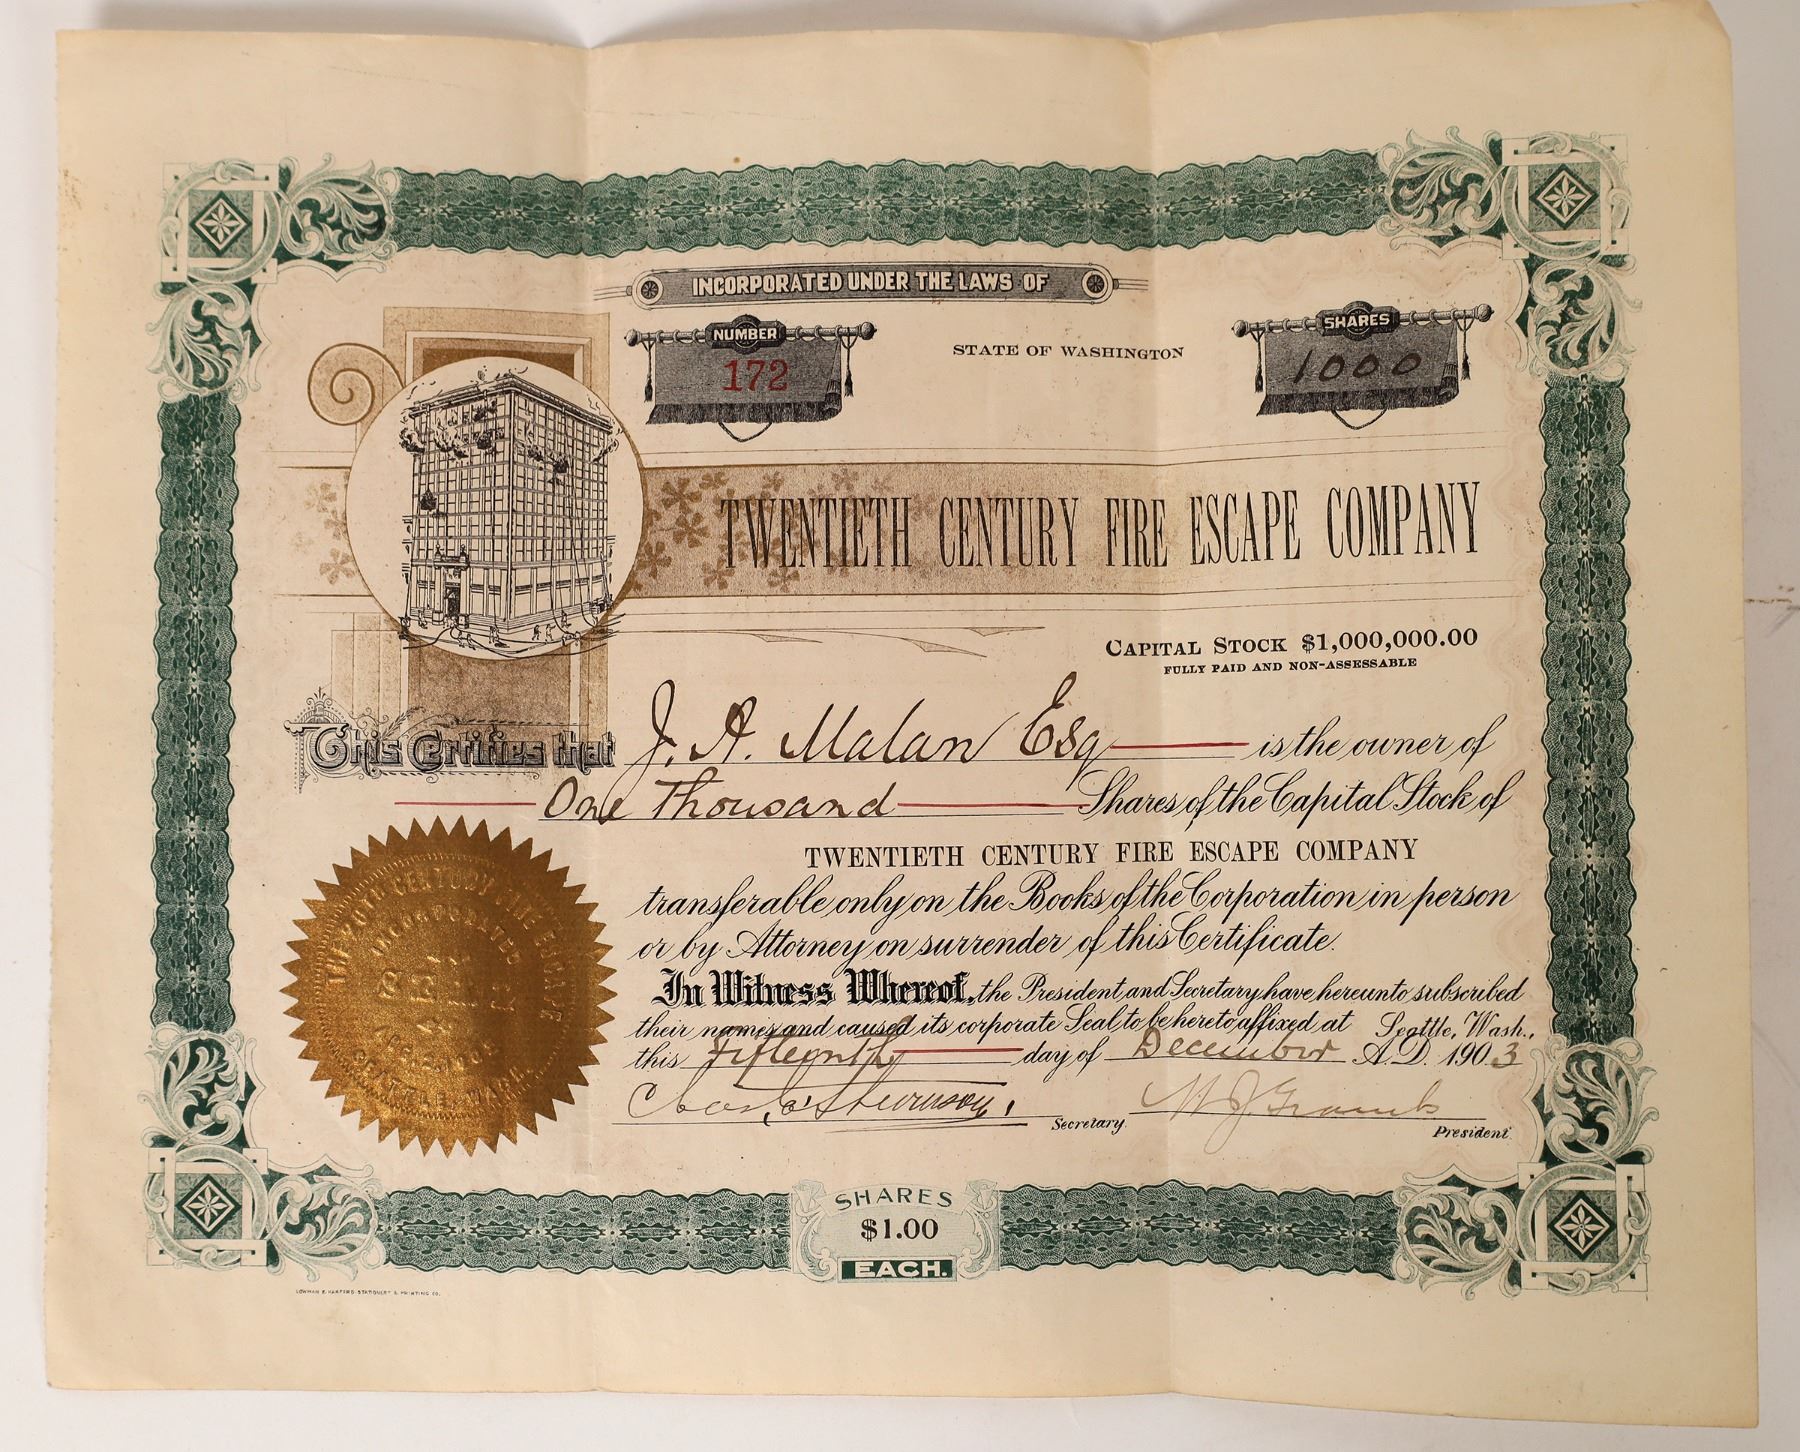 INCORPORATED UNDER THE LAWS OF
NUMBER
172
STATE OF WASHINGTON
SHARES
1000
TWENTIETH CENTURY FIRE ESCAPE COMPANY
CAPITAL STOCK $1,000,000.00
FULLY PAID AND NON-ASSESSABLE
This Certifies that J. A. Malan Esq is the owner of
One Thousand Shares of the Capital Stock of
TWENTIETH CENTURY FIRE ESCAPE COMPANY
transferable only on the Books of the Corporation in person
or by Attorney on surrender of this Certificate.
In Witness Whereof, the President and Secretary have hereunto subscribed
their names and caused its corporate Seal to be hereto affixed at Seattle, Wash.,
this Fifteenth day of December A.D. 1903
Secretary.
President.
THE 20TH CENTURY FIRE ESCAPE
INCORPORATED
SEAL
SEATTLE, WASH.
SHARES
$1.00
EACH.
LOWMAN & HANFORD STATIONERY & PRINTING CO.